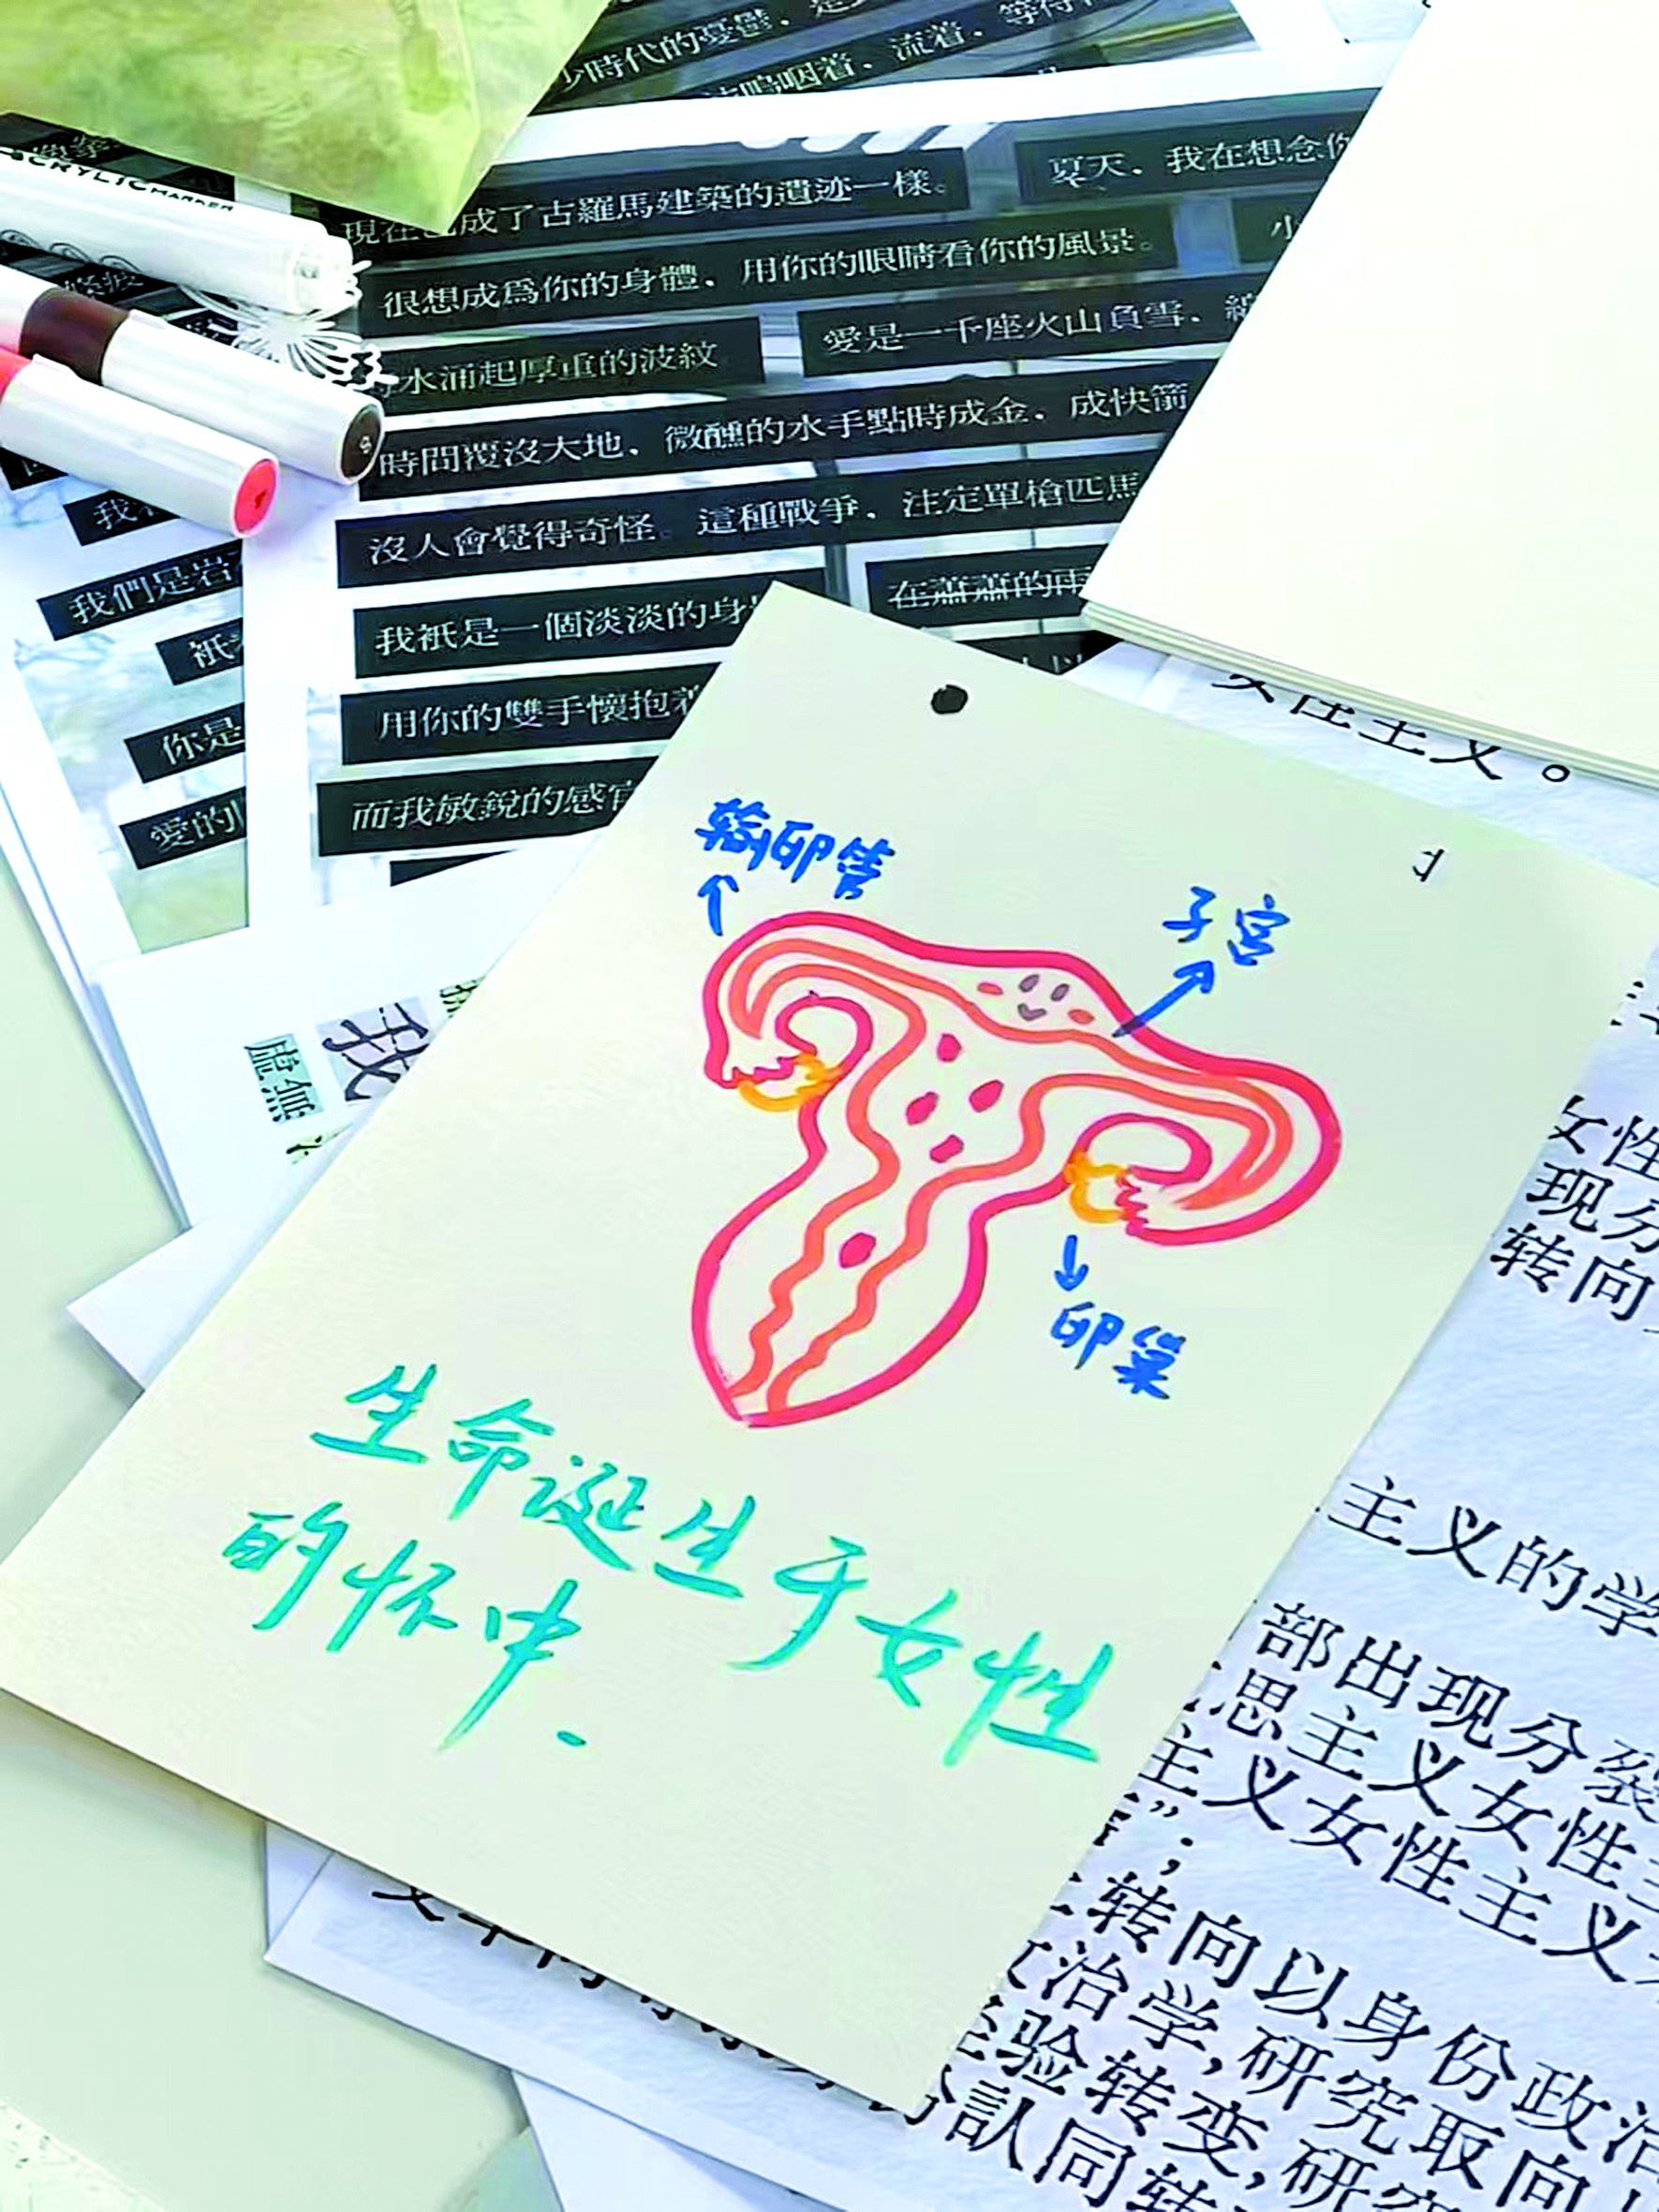 少時代的憂鬱，是
嗚咽着、流着、等待
ACRYLIC MARKER
現在也成了古羅馬建築的遺迹一樣。
夏天，我在想念你
很想成爲你的身體，用你的眼睛看你的風景。
小
水涌起厚重的波紋
愛是一千座火山負雪，
時間覆沒大地，微醺的水手點時成金，成快箭
沒人會覺得奇怪。這種戰爭，注定單槍匹馬
我
我們是岩
我祇是一個淡淡的身
在蕭蕭的雨
祇
用你的雙手懷抱着
你是
而我敏銳的感官
愛的
女性主义。
输卵管
子宫
卵巢
生命诞生于女性
的怀中.
虛無
我
女性
现分
转向
主义的学
部出现分裂
思主义女性主
主义女性主义
”；
转向以身份政治
政治学,研究取向
经验转变,研究
認同转